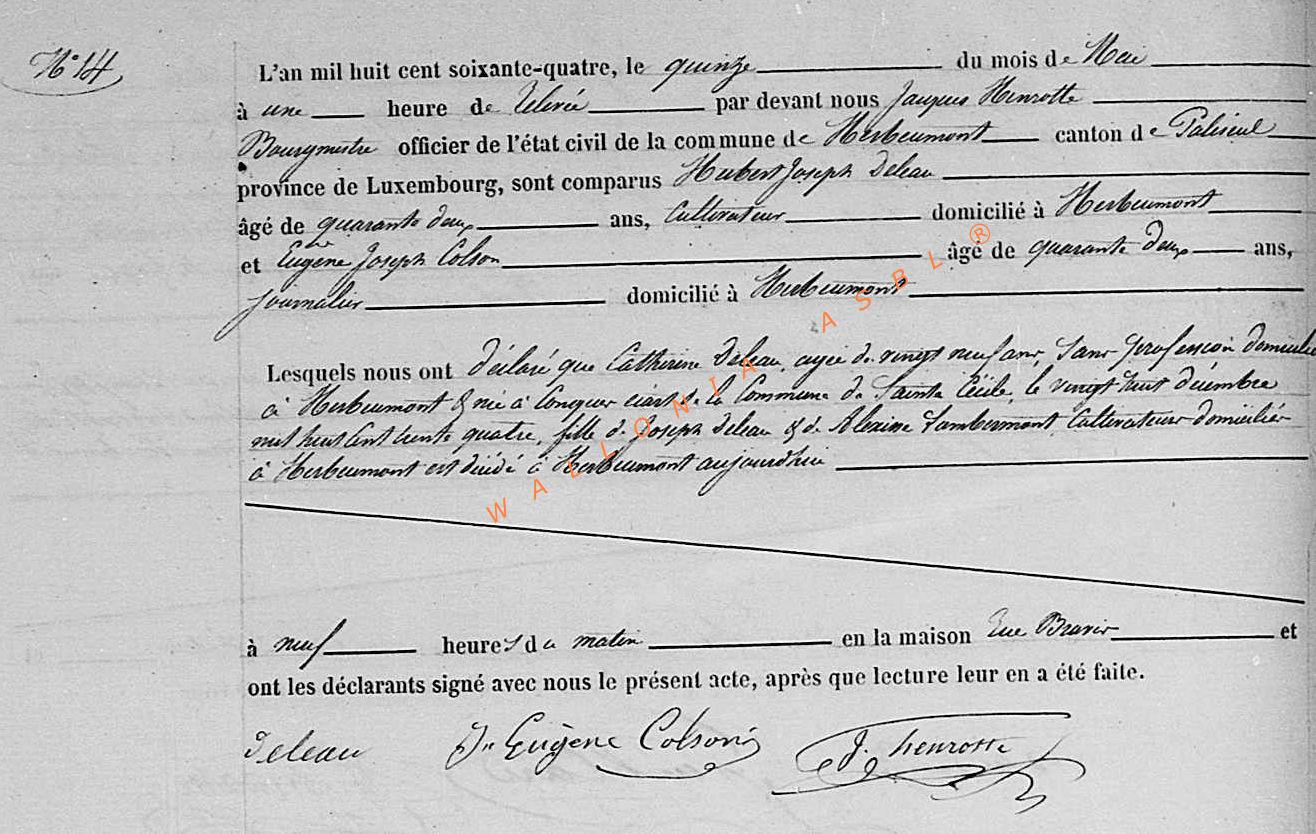 N° 14
L'an mil huit cent soixante-quatre, le quinze du mois de Mai
à une heure de relevée par devant nous Jacques Henrotte
Bourgmestre officier de l'état civil de la commune de Herbeumont canton de Paliseul
province de Luxembourg, sont comparus Hubert Joseph Deleau
âgé de quarante deux ans, Cultivateur domicilié à Herbeumont
et Eugène Joseph Colson âgé de quarante deux ans,
journalier domicilié à Herbeumont
Lesquels nous ont déclaré que Catherine Deleau, agée de vingt neuf ans, sans profession domiciliée
à Herbeumont & née à Conques écart de la Commune de Sainte Cécile, le vingt huit décembre
mil huit cent trente quatre, fille de Joseph Deleau & de Alexine Lambermont Cultivateurs domiciliés
à Herbeumont est décédé à Herbeumont aujourdhui
à neuf heures du matin en la maison et
ont les déclarants signé avec nous le présent acte, après que lecture leur en a été faite.
Deleau Jh Eugène Colson J. henrotte
WALLONIA ASBL ®